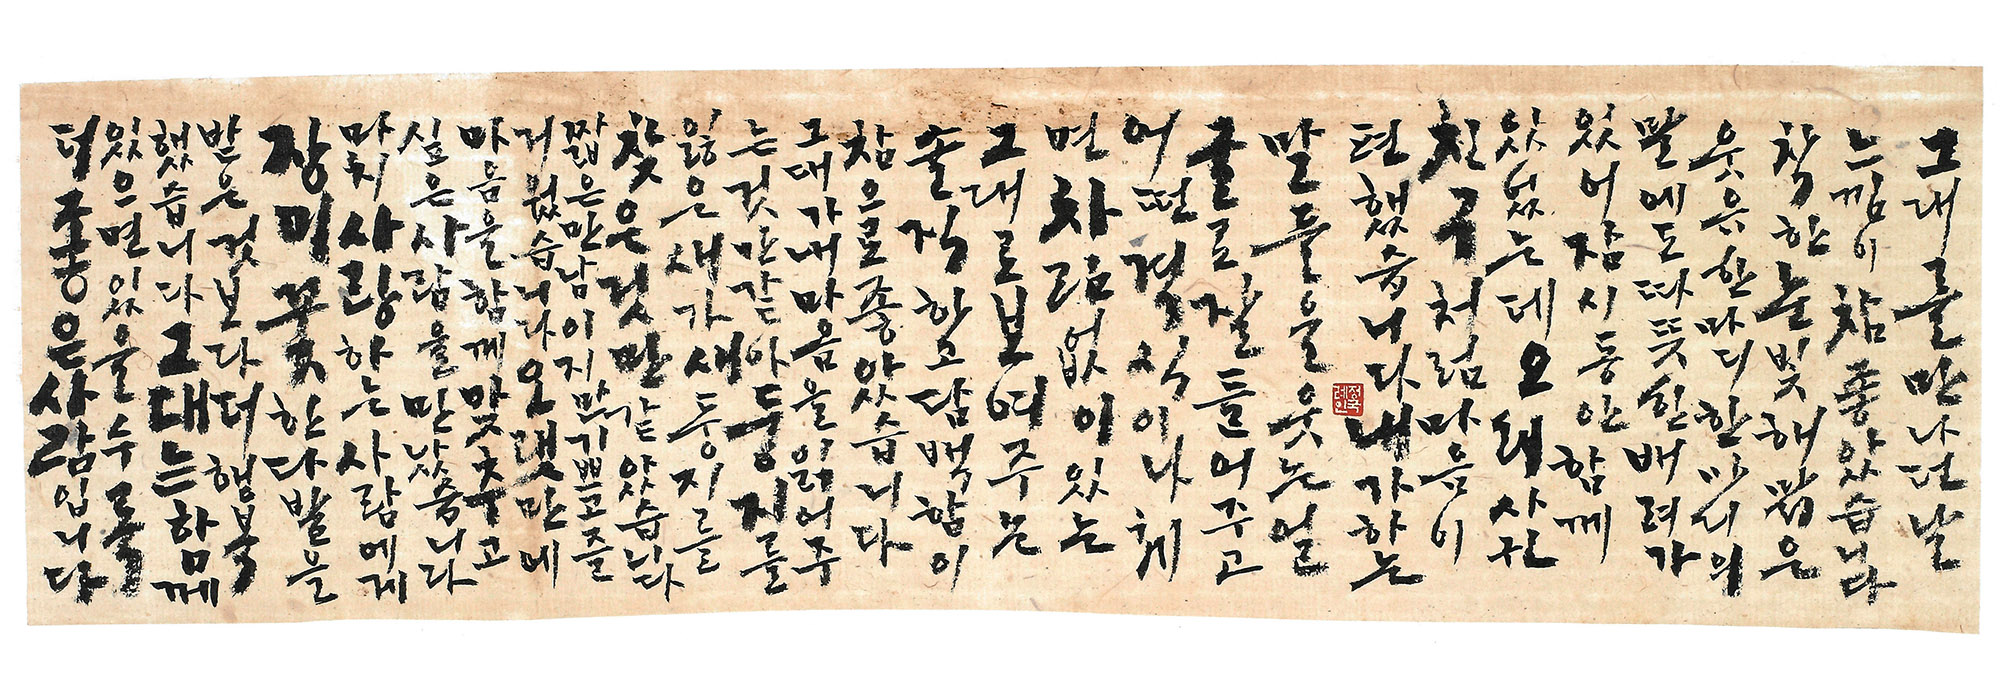 그대를만나던날
느낌이참좋았습니다
착한눈빛해맑은
웃음한마디한마디의
말에도따뜻한배려가
있어잠시동안함께
있었는데오래사귄
친구처럼마음이
편했습니다내가하는
말들을웃는얼
굴로잘들어주고
어떤격식이나체
면차림없이있는
그대로보여주는
솔직하고담백함이
참으로좋았습니다
그대가내마음을읽어주
는것만같아둥지를
잃은새가새둥지를
찾은것만같았습니다
짧은만남이지만기쁘고즐
거웠습니다오랫만에
마음을함께맞추고
싶은사람을만났습니다
마치사랑하는사람에게
장미꽃한다발을
받은것보다더행복
했습니다그대는함께
있으면있을수록
더좋은사람입니다